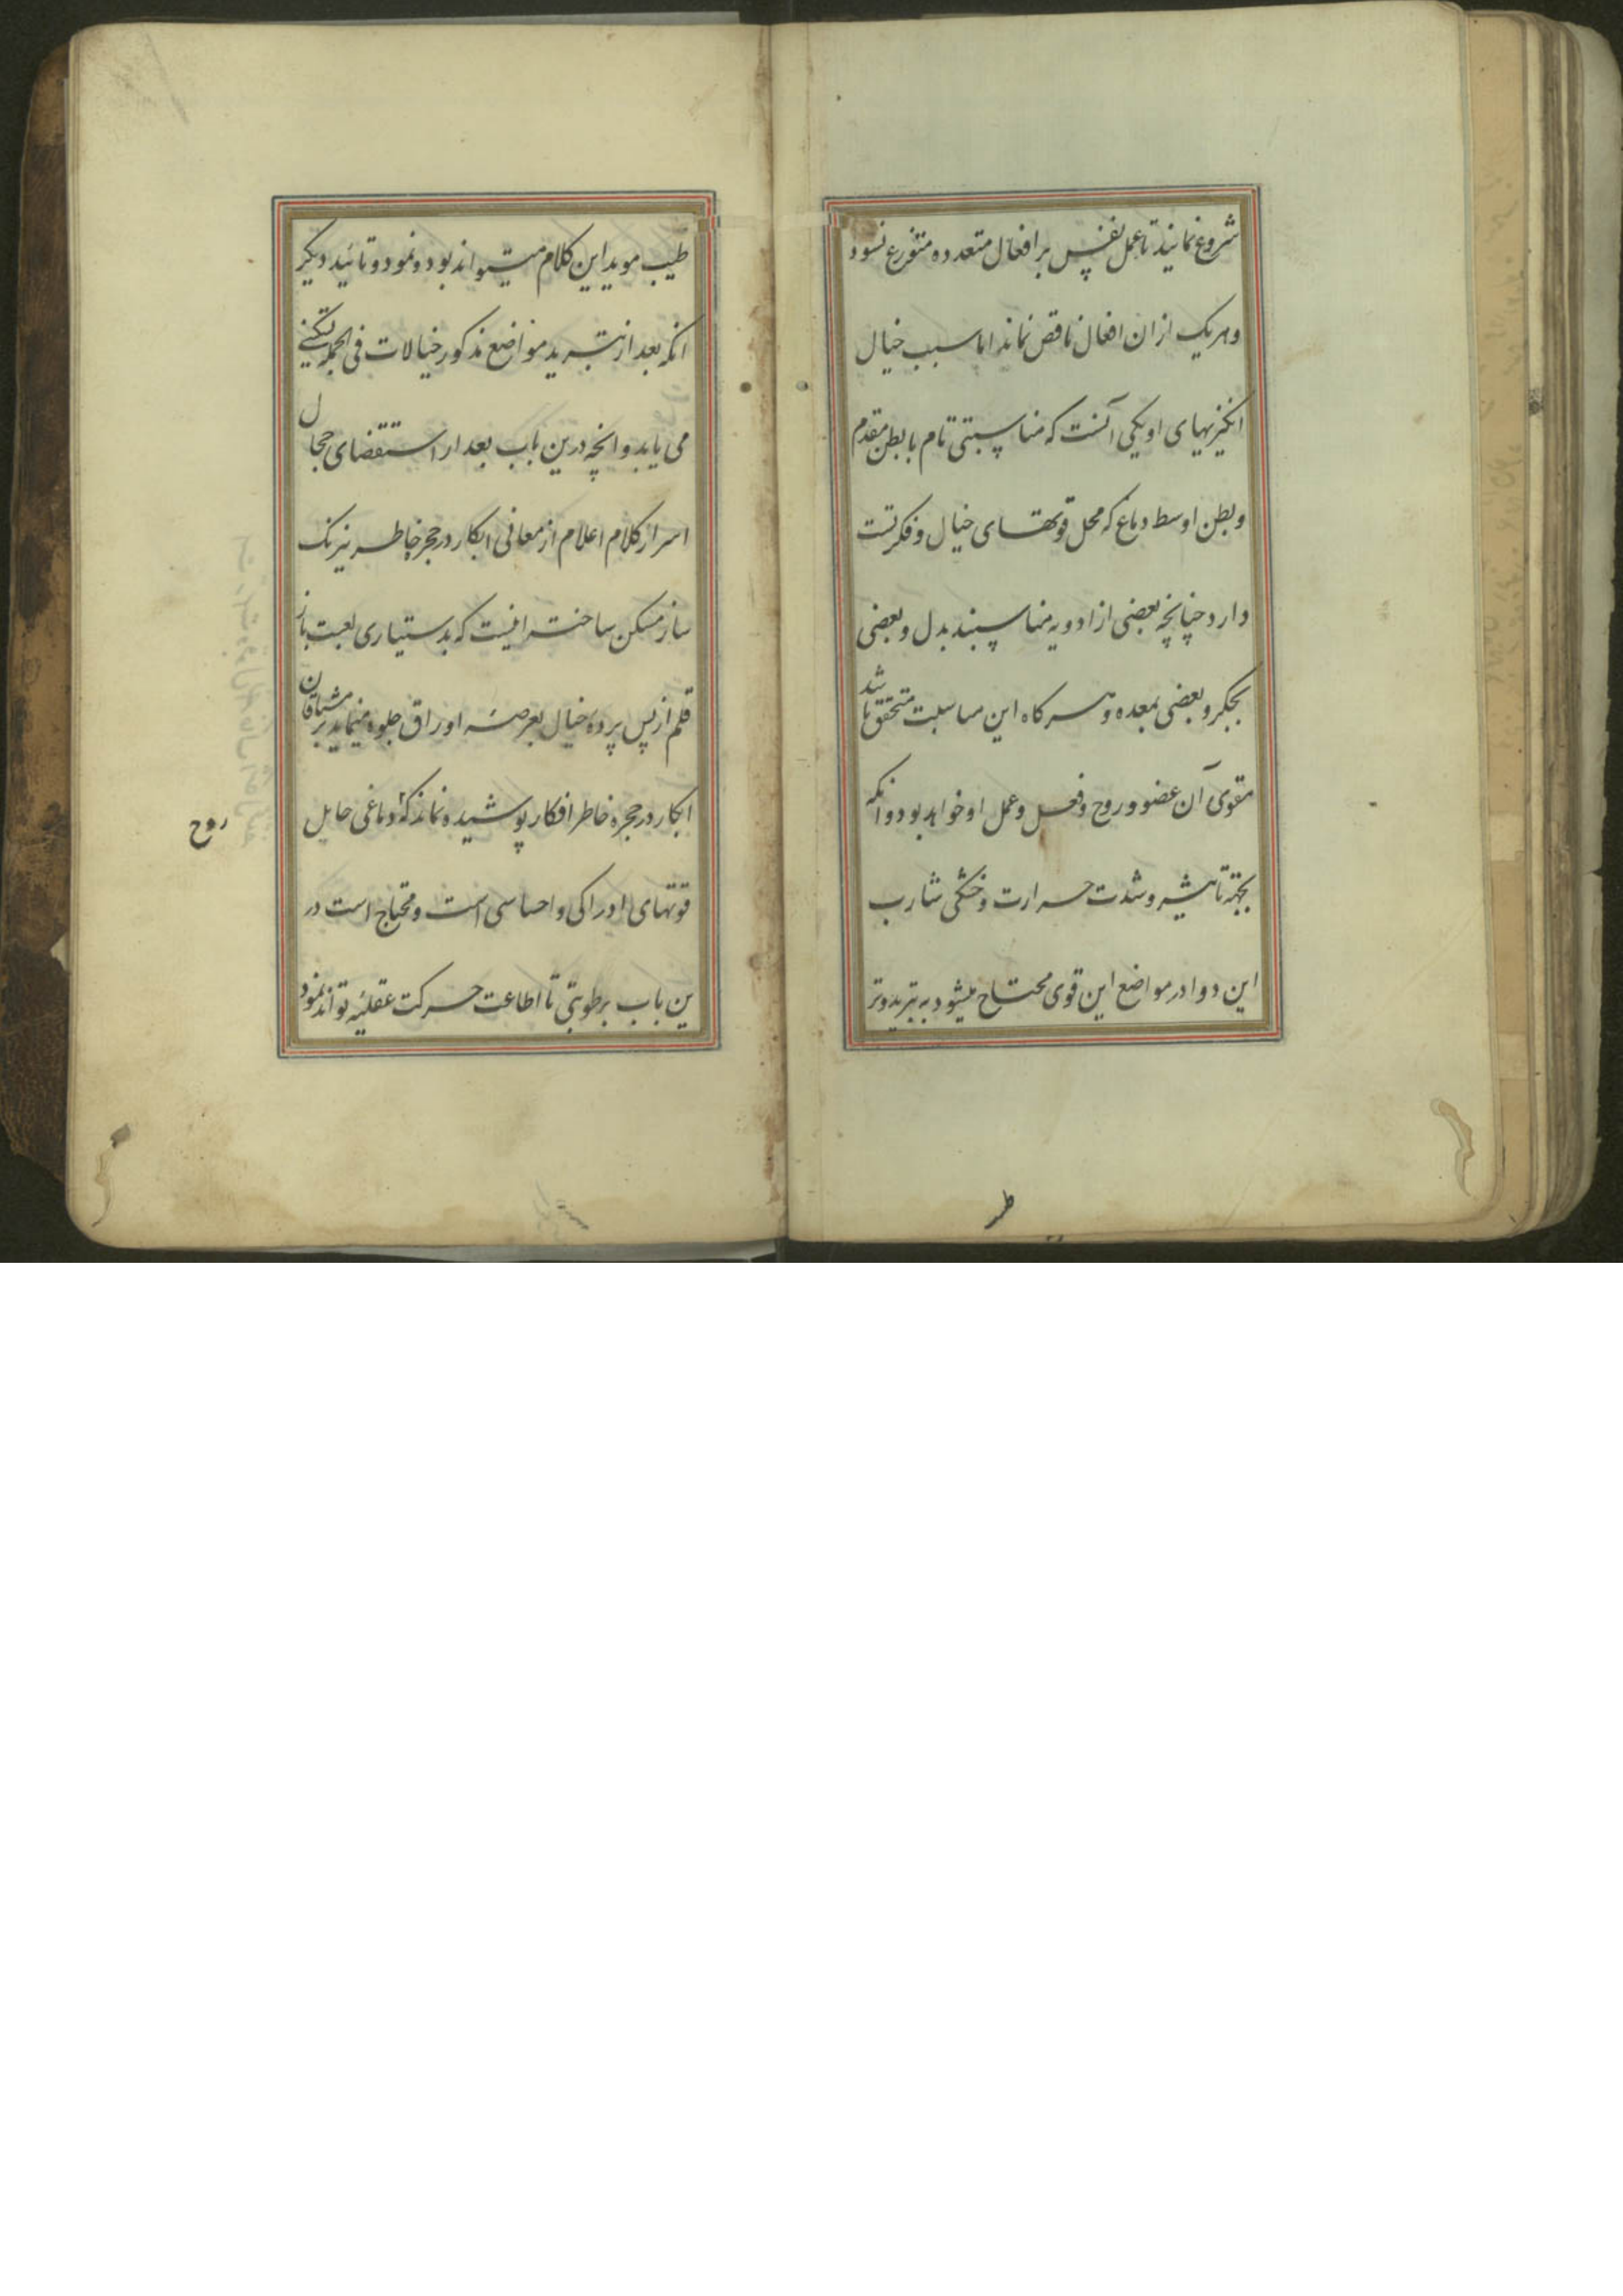 شروع نمایند تا عمل نفس بر افعال متعدده متفرع نسود
و هریک از ان افعال ناقص نماند اما سبب خیال
انکیزیهای او یکی آنست که مناسبتی تام با بطن مقدم
و بطن اوسط دماغ که محل قوتهای خیال و فکرتست
دارد چنانچه بعضی از ادویه مناسبند بدل و بعضی
بجکر و بعضی بمعده و هر کاه این مناسبت متحقق باشد
مقوی آن عضو و روح و فعل و عمل او خواهد بود و انکه
بجهة تاثیر و شدت حرارت و خشکی شارب
این دوا در مواضع این قوی محتاج میشود به تبرید و تر
طیب موید این کلام میتواند بود و نمود و تائید دیکر
انکه بعد از تبرید مواضع مذکور خیالات فی الجمله تسکینی
می یابد و انچه درین باب بعد از استقضای حجال
اسرار کلام اعلام از معانی ابکار در حجره خاطر نیرنک
ساز مسکن ساخته اینست که بدستیاری لعبت باز
قلم از پس پرده خیال بعرصه اوراق جلوه مینماید بر مشتاقان
ابکار در حجره خاطر افکار پوشیده نماند که دماغی حایل
روح
قوتهای ادراکی و احساسی است و محتاج است در
ین باب برطوبتی تا اطاعت حرکت عقلیه تواند نمود